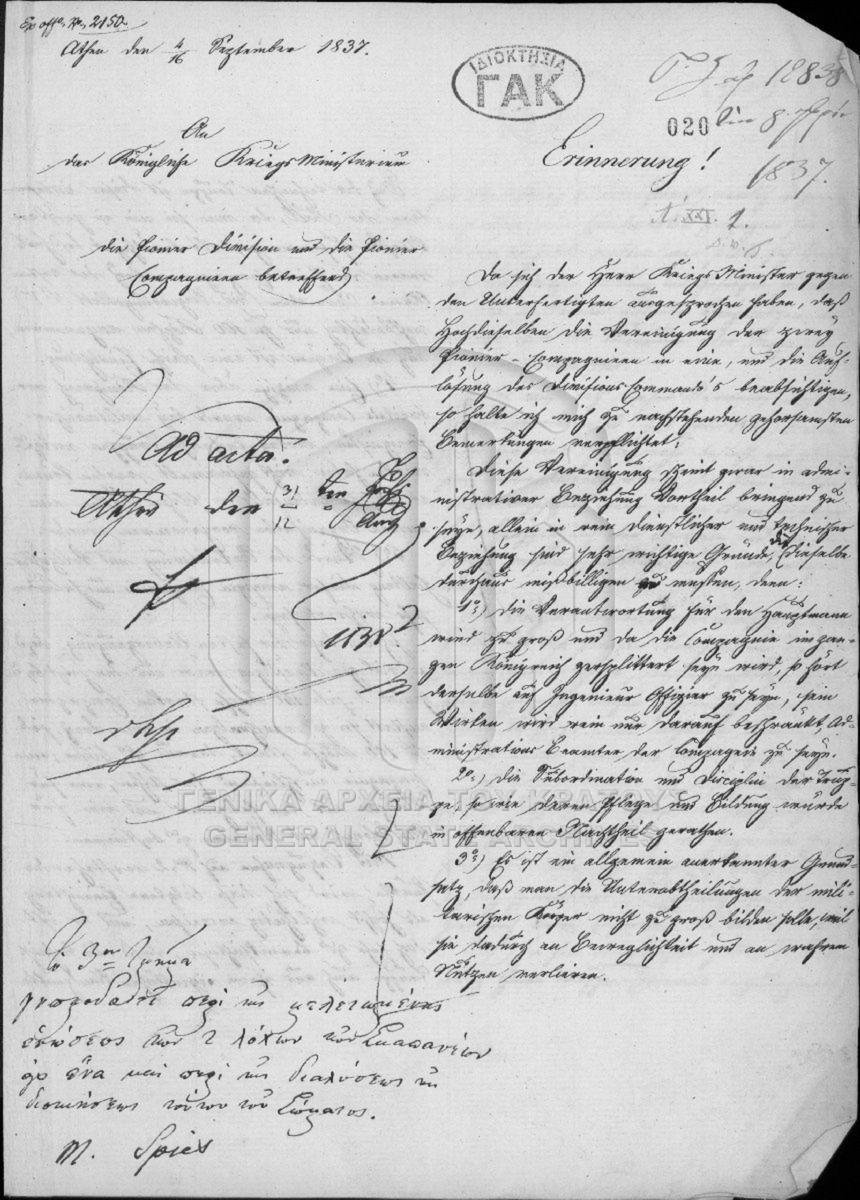 Ex offo. No. 2150.
Athen den 4/16 September 1837.
ΙΔΙΟΚΤΗΣΙΑ
ΓΑΚ
020
12838
1837.
An
das Königliche KriegsMinisterium
Erinnerung!
XXI. 1.
die Pionier Division und die Pionier
Compagnieen betreffend
Da sich der Herr KriegsMinister gegen
den Unterfertigten ausgesprochen haben, daß
Hochdieselben die Vereinigung der zwey
Pionier-Compagnieen in eine, und die Auf-
lösung des DivisionsCommando's beabsichtigen,
so halte ich mich zu nachstehenden gehorsamsten
Bemerkungen verpflichtet:
Diese Vereinigung scheint zwar in admi-
nistrativer Beziehung Vortheil bringend zu
seyn, allein in rein dienstlicher und technischer
Beziehung sind sehr wichtige Gründe, die dieselbe
durchaus mißbilligen müssen, denn:
1o.) die Verantwortung für den Hauptmann
wird zu groß und da die Compagnie im gan-
zen Königreich zersplittert seyn wird, so hört
derselbe auf Ingenieur Offizier zu seyn, sein
Wirken wird rein nur darauf beschränkt, Ad-
ministrativer Beamter der Compagnie zu seyn.
2o.) die Subordination und Disciplin der Trup-
pe, so wie deren Pflege und Bildung würde
in offenbaren Nachtheil gerathen.
3o.) Es ist ein allgemein anerkannter Grund-
satz, daß man die Unterabtheilungen der mili-
tärischen Körper nicht zu groß bilden solle, weil
sie dadurch an Beweglichkeit und an wahrem
Nutzen verlieren.
ad acta.
Athen den 31/12
1837
ΓΕΝΙΚΑ ΑΡΧΕΙΑ ΤΟΥ ΚΡΑΤΟΥΣ
GENERAL STATE ARCHIVES
Τὸ 3ον Τμῆμα
γνωμοδοτεῖ περὶ τῆς μελετωμένης
ἑνώσεως τῶν 2 λόχων τῶν Σκαπανέων
εἰς ἕνα καὶ περὶ τῆς διαλύσεως τῆς
διοικήσεως τούτου τοῦ Σώματος.
M. Spies